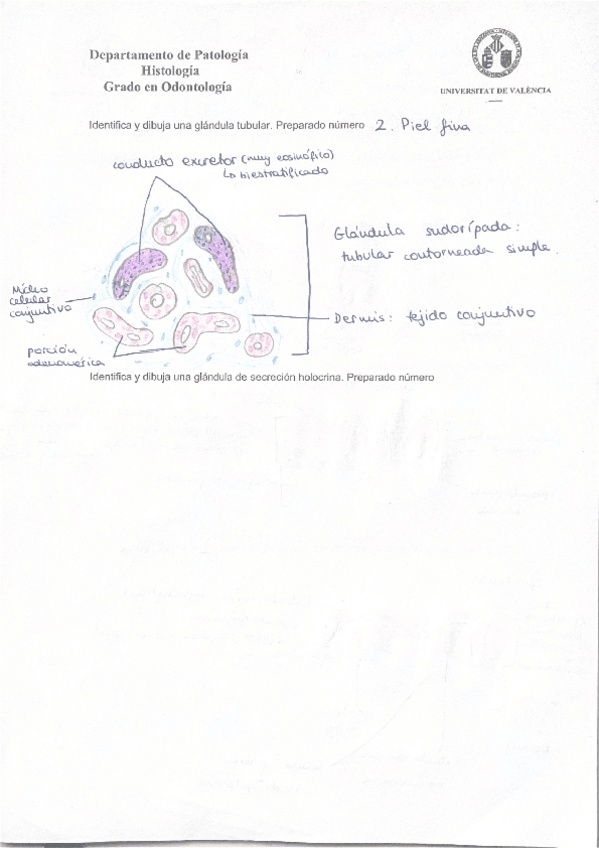 Departamento de Patología
Histología
Grado en Odontología
UNIVERSITAT DE VALÈNCIA
Identifica y dibuja una glándula tubular. Preparado número 2. Piel fina
conducto excretor (muy eosinófilo)
↳ biestratificado
Glándula sudorípada:
tubular contorneada simple.
Núcleo
celular
conjuntivo
Dermis: tejido conjuntivo
porción
adenomérica
Identifica y dibuja una glándula de secreción holocrina. Preparado número